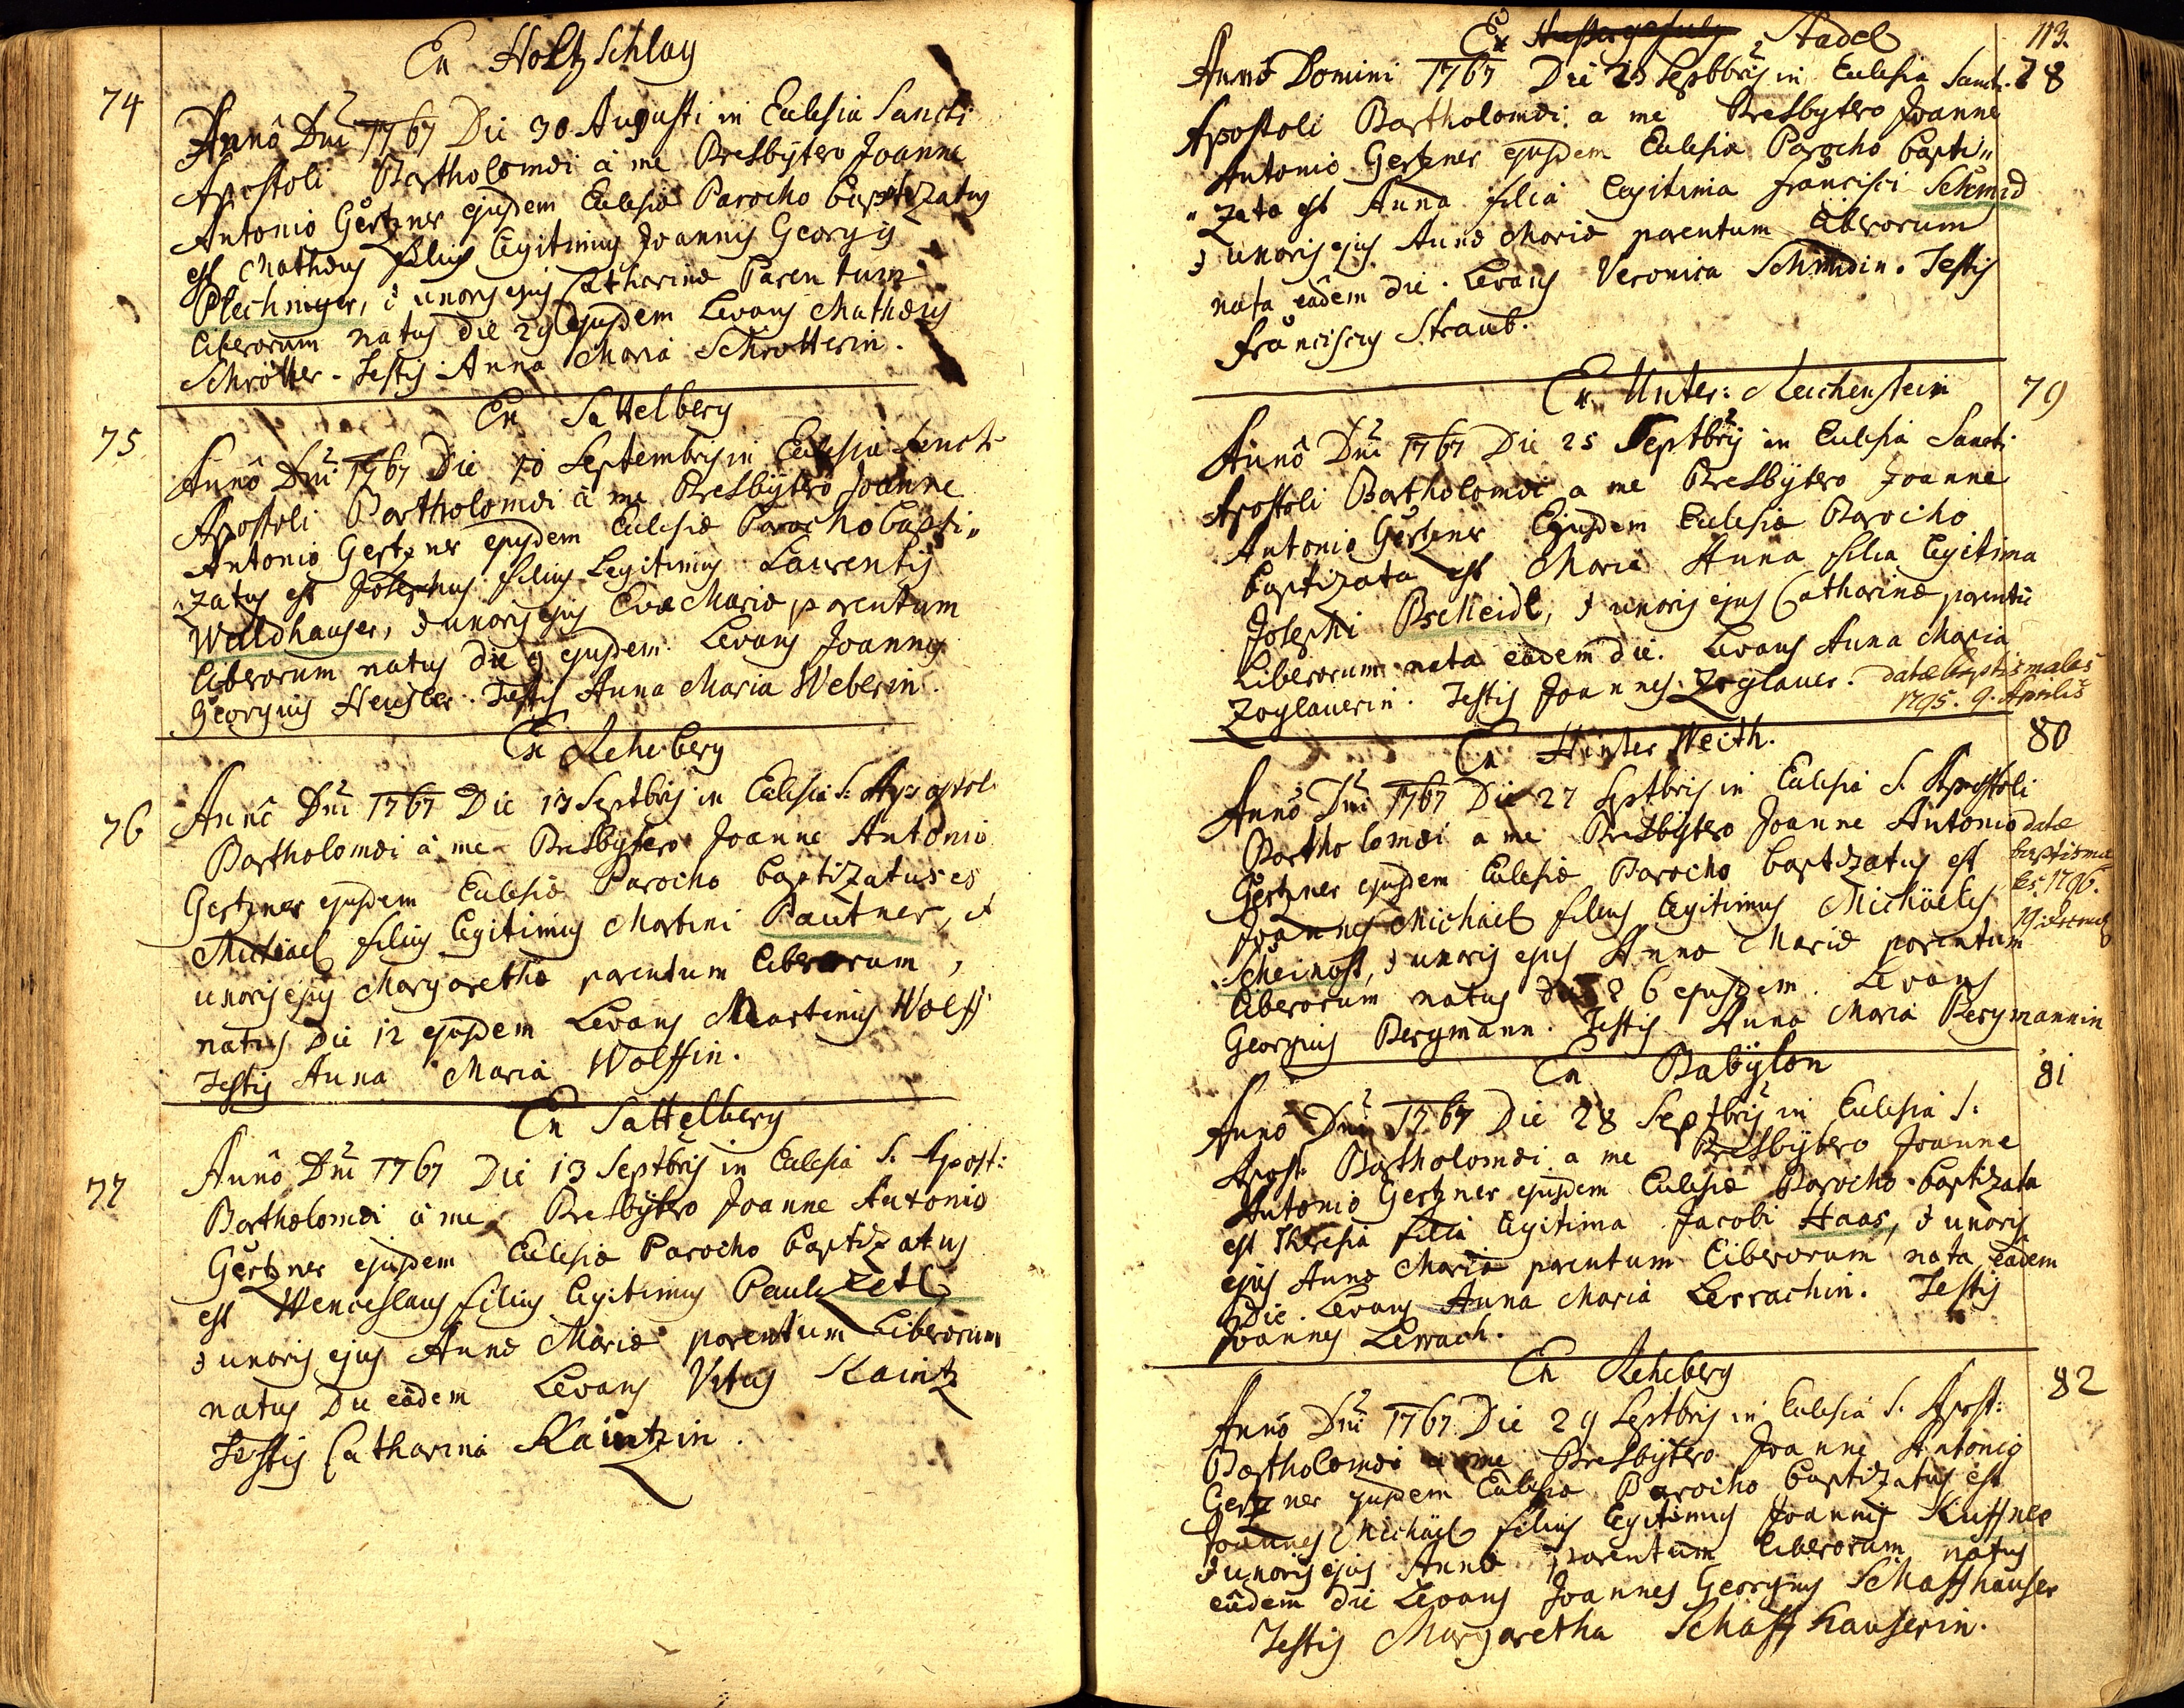 Ex Holtzschlag
74
Annô Dni 1767 Die 30 Augusti in Eccl͞esia Sancti
Apostoli Bartholomæi à me Presbytero Joanne
Antonio Gertzner ejusdem Ecclesiæ Parocho baptizatus
est Mathæus filius legitimus Joannis Georgij
Plechinger, & uxoris ejus Catharinæ Parentum
liberorum natus die 29 ejusdem Levans Mathæus
Schrötter. Testis Anna Maria Schrötterin.
Ex Sattelberg
75
Annô Dni 1767 Die 10 Septembris in Ecclesia Sancti
Apostoli Bartholomæi à me Presbytero Joanne
Antonio Gertzner ejusdem Ecclesiæ Parocho bapti„
„zatus est Josephus filius Legitimus Laurentij
Waldhauser, & uxoris ejus Evæ Mariæ parentum
liberorum natus die 9 ejusdem. Levans Joannes
Georgius Heusler. Testis Anna Maria Weberin.
Ex Rehberg
76
Annô Dni 1767 Die 13 Septbris in Ecclesia S. Apostoli
Bartholomæi à me Presbytero Joanne Antonio
Gertzner ejusdem Ecclesiæ Parocho baptizatus es
Michael filius legitimus Martini Pautner, et
uxoris ejus Margarethæ parentum liberorum,
natus Die 12 ejusdem Levans Martinus Wolff
Testis Anna Maria Wolffin.
Ex Sattelberg
77
Annô Dni 1767 Die 13 Septbris in Ecclesia S. Apost:
Bartholomæi à me Presbytero Joanne Antonio
Gertzner ejusdem Ecclesiæ Parocho baptizatus
est Wenceslaus filius legitimus Pauli Zetl
& uxoris ejus Annæ Mariæ parentum Liberorum
natus Die eâdem Levans Vitus Kaintz
Testis Catharina Kaintzin.
113.
Ex Stadel
78
Annô Domini 1767 Die 23 Septbris in Ecclesia Sancti
Apostoli Bartholomæi a me Presbytero Joanne
Antonio Gertzner ejusdem Ecclesiæ Parocho bapti„
„zata est Anna filia legitima Francisci Schmid
& uxoris ejus Annæ Mariæ parentum liberorum
nata eâdem die. Levans Veronica Schmidin. Testis
Franciscus Straub.
Ex Unter: Reichenstein
79
Annô Dni 1767 Die 25 Septbris in Ecclesia Sancti
Apostoli Bartholomæi a me Presbytero Joanne
Antonio Gertzner Ejusdem Ecclesiæ Parocho
baptizata est Maria Anna filia legitima
Josephi Bscheidl, & uxoris ejus Catharinæ parentũ
Liberorum nata eâdem die. Levans Anna Maria
Zoglauerin. Testis Joannes Zoglauer. datæ baptismales
1795. 9. Aprilis
Ex Hinter Weith.
80
Annô Dni 1767 Die 27 Septbris in Ecclesia S. Apostoli
Bartholomæi a me Presbytero Joanne Antonio
Gertzner ejusdem Ecclesiæ Parocho baptizatus est
Joannes Michäel filius legitimus Michäelis
Scheinost, & uxoris ejus Annæ Mariæ parentum
liberorum natus die 26 ejusdem. Levans
Georgius Bergmann. Testis Anna Maria Bergmannin
datæ
baptisma
les. 1796.
Ex Babÿlon
81
Annô Dni 1767 Die 28 Septbris in Ecclesia S.
Apost. Bartholomæi a me Presbytero Joanne
Antonio Gertzner ejusdem Ecclesiæ Parocho baptizata
est Theresia filia legitima Jacobi Haas, & uxoris
ejus Annæ Mariæ parentum liberorum nata eâdem
Die. Levans Anna Maria Lerrachin. Testis
Joannes Lerrach.
Ex Rehberg
82
Annô Dni 1767 Die 29 Septbris in Ecclesia S. Apost:
Bartholomæi a me Presbytero Joanne Antonio
Gertzner ejusdem Ecclesiæ Parocho baptizatus est
Joannes Michäel filius legitimus Joannis Kuffner
& uxoris ejus Annæ parentum liberorum natus
eâdem die Levans Joannes Georgius Schaffhauser
Testis Margaretha Schaffhauserin.